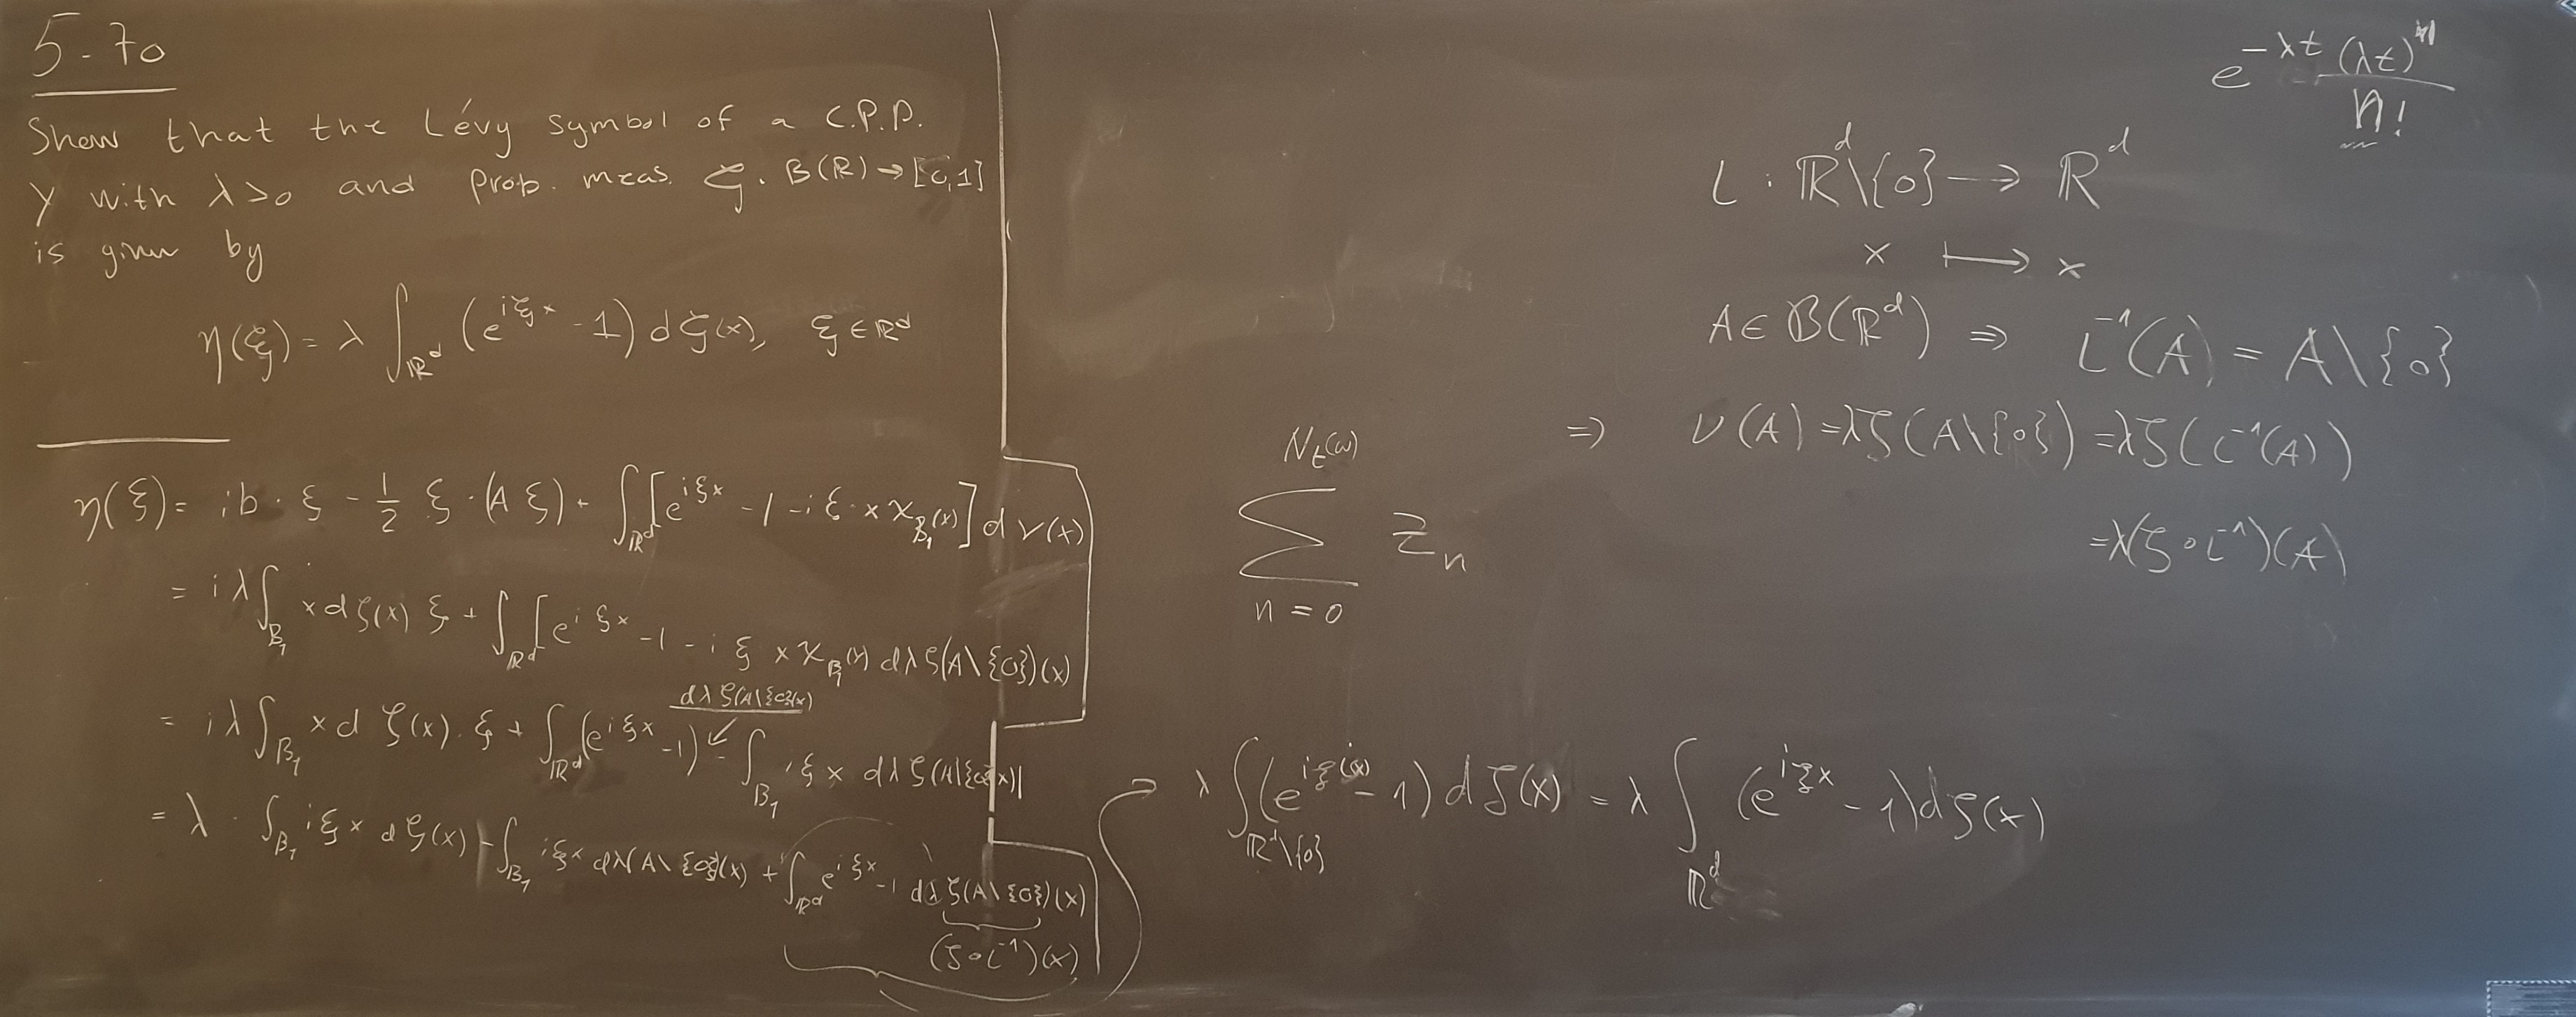 5-70
Show that the Lévy symbol of a C.P.P.
Y with λ>0 and prob. meas. ζ: B(R) → [0,1]
is given by
η(ξ) = λ ∫_{ℝ^d} (e^{iξx} - 1) dζ(x), ξ ∈ ℝ^d
η(ξ) = ib · ξ - 1/2 ξ · (A ξ) + ∫_{ℝ^d} [e^{iξx} - 1 - iξ · x χ_{B_1}(x)] dν(x)
= iλ ∫_{B_1} x dζ(x) ξ + ∫_{ℝ^d} [e^{iξx} - 1 - i ξ x χ_{B_1}(x) dλζ(A\{0})(x)
dλζ(A\{0})(x)
= iλ ∫_{B_1} x d ζ(x) · ξ + ∫_{ℝ^d} (e^{iξx} - 1) ↙ - ∫_{B_1} iξx dλζ(A\{0})(x)
= λ · ∫_{B_1} iξx dζ(x) - ∫_{B_1} iξx dλ(A\{0})(x) + ∫_{ℝ^d} e^{iξx} - 1 dλ ζ(A\{0})(x)
(ζ∘L^{-1})(x)
N_t(ω)
∑ Z_n
n = 0
λ ∫_{ℝ^d\{0}} (e^{iξ(x)} - 1) dζ(x) = λ ∫_{ℝ^d} (e^{iξx} - 1) dζ(x)
e^{-λt} (λt)^n / n!
L : ℝ^d\{0} → ℝ^d
x ↦ x
A ∈ B(ℝ^d) ⇒ L^{-1}(A) = A\{0}
⇒ ν(A) = λζ(A\{0}) = λζ(L^{-1}(A))
= λ(ζ∘L^{-1})(A)